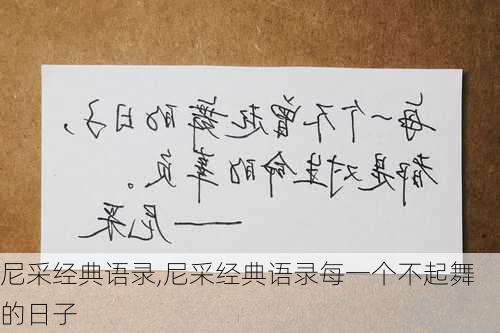 每一个不曾起舞的日子，
都是对生命的辜负。
——尼采
尼采经典语录,尼采经典语录每一个不起舞
的日子